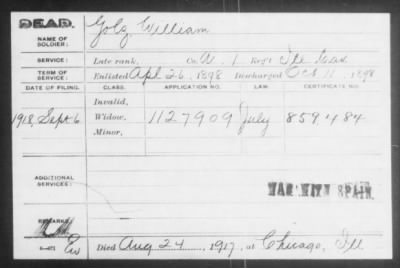 DEAD.
NAME OF SOLDIER: Golz, William
SERVICE: Late rank, Co. A. 1 Reg't Ill Cav
TERM OF SERVICE: Enlisted Apl 26, 1898 Discharged Oct 11, 1898
DATE OF FILING. CLASS. APPLICATION NO. LAW. CERTIFICATE NO.
Invalid,
1918, Sept 6 Widow, 1127909 July 859484
Minor,
ADDITIONAL SERVICES: WAR WITH SPAIN.
REMARKS:
Died Aug 24, 1917, at Chicago, Ill